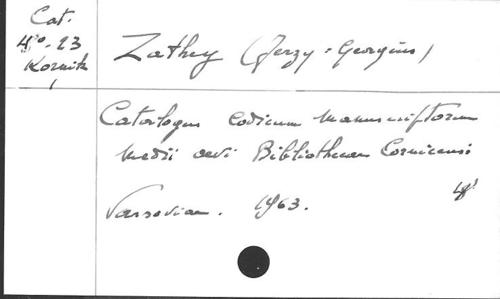 Cat.
4° - 23
Kornik
Zathey (Jerzy = Georgius)
Catalogus codicum manuscriptorum
medii aevi Bibliothecae Cornicensi
Varsoviae. 1963. 4°